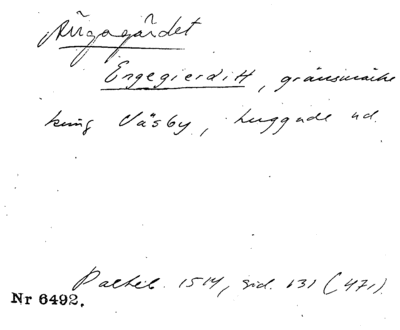 Ängagärdet
Engegierditt, gränsmärke
kring Väsby, huggade ud.
Palteb. 1514, sid. 131 (471).
Nr 6492.